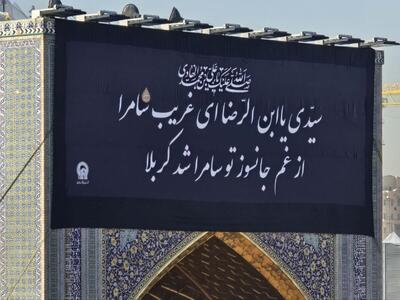 صلی الله علیک یا علی بن محمد الهادی
سیّدی یاابن الرّضا ای غریب سامرا
از غم جانسوز تو سامرا شد کربلا